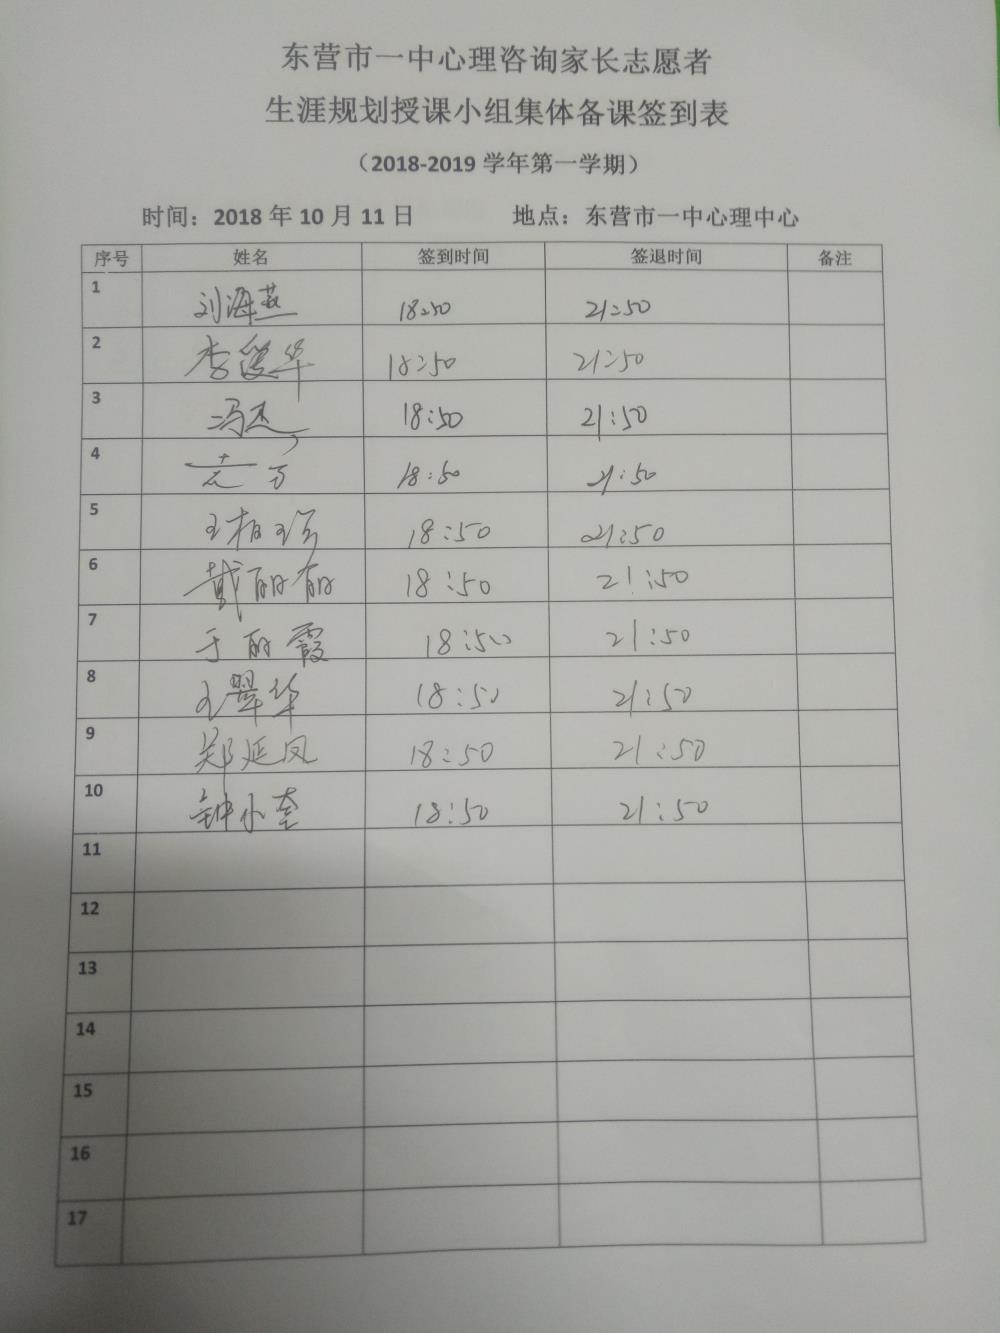 东营市一中心理咨询家长志愿者
生涯规划授课小组集体备课签到表
（2018-2019 学年第一学期）
时间：2018 年 10 月 11 日 地点：东营市一中心理中心
序号 姓名 签到时间 签退时间 备注
1 刘海燕 18:50 21:50
2 李俊华 18:50 21:50
3 冯杰 18:50 21:50
4 18:50 21:50
5 王相 18:50 21:50
6 戴丽丽 18:50 21:50
7 于丽霞 18:50 21:50
8 王翠华 18:50 21:50
9 郑延凤 18:50 21:50
10 钟小奎 18:50 21:50
11
12
13
14
15
16
17